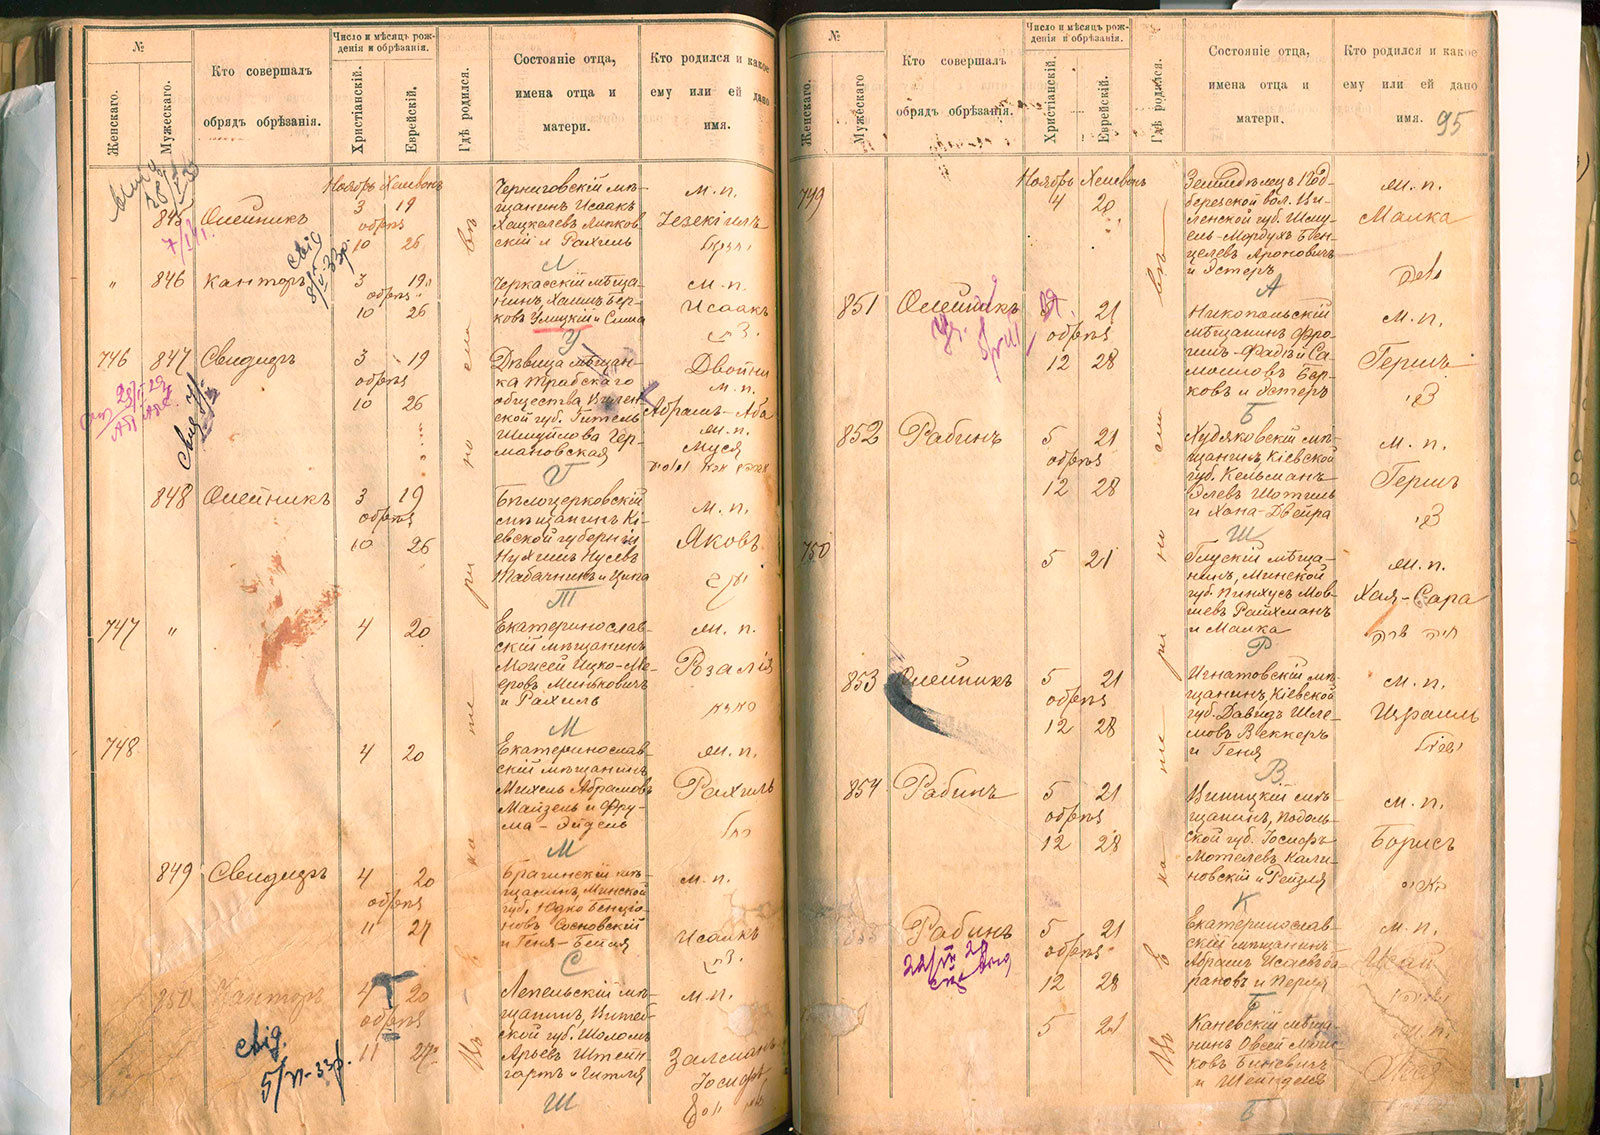 №
Женскаго.
Мужескаго.
Кто совершалъ
обрядъ обрѣзанія.
Число и мѣсяцъ рож-
денія и обрѣзанія.
Христіанскій.
Еврейскій.
Гдѣ родился.
Состояніе отца,
имена отца и
матери.
Кто родился и какое
ему или ей дано
имя.
Ноябрь Хешвонъ
845 Олейникъ
3 19
обрѣз
10 26
Черниговскій мѣ-
щанинъ Исаакъ
Хацкелевъ Липков-
скій и Рахиль
м. п.
Іезекіиль
Л
" 846 Канторъ
3 19
обрѣз
10 26
Черкасскій мѣща-
нинъ, Хаимъ Бер-
ковъ Улицкій и Сима
м. п.
Исаакъ
У
746 847 Свидидръ
3 19
обрѣз
10 26
Дѣвица мѣщан-
ка Трабскаго
общества Вилен-
ской губ. Гитель
Шмуйлова Гер-
мановская
Двойни
м. п.
Абрамъ-Аба
м. п.
Муся
Г
848 Олейникъ
3 19
обрѣз
10 26
Бѣлоцерковскій
мѣщанинъ Кі-
евской губерніи
Нухимъ Нусевъ
Табачникъ и Ципа
м. п.
Яковъ
Т
747 "
4 20
Екатеринослав-
скій мѣщанинъ
Моисей Ицко-Ме-
еровъ Минковичъ
и Рахиль
м. п.
Розалія
М
748
4 20
Екатеринослав-
скій мѣщанинъ
Михель Абрамовъ
Майзель и Фру-
ма-Эйдель
м. п.
Рахиль
М
849 Свидидръ
4 20
обрѣз
11 27
Брагинскій мѣ-
щанинъ, Минской
губ. Юдко Бенціо-
новъ Сосновскій
и Геня-Бейля
м. п.
Исаакъ
С
850 Канторъ
4 20
обрѣз
11 27
Лепельскій мѣ-
щанинъ, Витеб-
ской губ. Шоломъ
Арьевъ Штейн-
гартъ и Гитля
м. п.
Залманъ
Іосифъ
Ш
свід.
5/VI-33р.
№
Женскаго.
Мужескаго
Кто совершалъ
обрядъ обрѣзанія.
Число и мѣсяцъ рож-
денія и обрѣзанія.
Христіанскій.
Еврейскій.
Гдѣ родился.
Состояніе отца,
имена отца и
матери.
Кто родился и какое
ему или ей дано
имя.
95
Ноябрь Хешвонъ
749
4 20
Земледѣлецъ Под-
березской вол. Ви-
ленской губ. Шму-
ель-Мордухъ Бен-
целевъ Ароновичъ
и Эстеръ
м. п.
Малка
А
851 Олейникъ
21
обрѣз
12 28
Никопольскій
мѣщанинъ Фро-
имъ-Фадѣй Са-
мойловъ Бер-
ковъ и Эстеръ
м. п.
Гершъ
Б
852 Рабинъ
5 21
обрѣз
12 28
Худяковскій мѣ-
щанинъ Кіевской
губ. Кельманъ
Элевъ Шотиль
и Хана-Двейра
м. п.
Гершъ
Ш
750
5 21
Глускій мѣща-
нинъ, Минской
губ. Пинхусъ Мов-
шевъ Райхманъ
и Малка
м. п.
Хая-Сара
חיה שרה
Р
853 Олейникъ
5 21
обрѣз
12 28
Игнатовскій мѣ-
щанинъ, Кіевской
губ. Давидъ Шле-
мовъ Веккеръ
и Геня
м. п.
Израиль
В
854 Рабинъ
5 21
обрѣз
12 28
Винницкій мѣ-
щанинъ, Подоль-
ской губ. Іосифъ
Мотелевъ Кали-
новскій и Рейзля
м. п.
Борисъ
К
Рабинъ
5 21
обрѣз
12 28
Екатеринослав-
скій мѣщанинъ
Абрамъ Исаевъ Ба-
рановъ и Перля
м. п.
Исай
Б
5 21
Каневскій мѣща-
нинъ Овсей Мошковъ
Биневичъ
и Шейндля
м. п.
Б